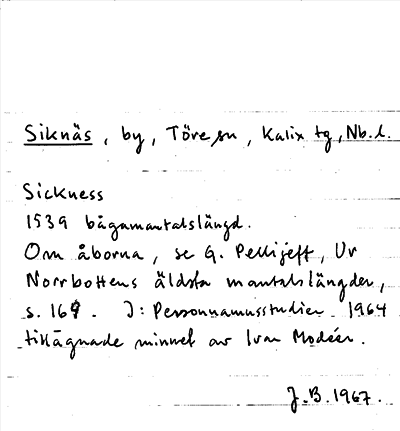 Siknäs, by, Töre sn, Kalix tg, Nb.l.
Sickness
1539 bågamantalslängd.
Om åborna, se G. Pellijeff, Ur
Norrbottens äldsta mantalslängder,
s. 169. I: Personnamnsstudier 1964
tillägnade minnet av Ivar Modéer.
J.B. 1967.